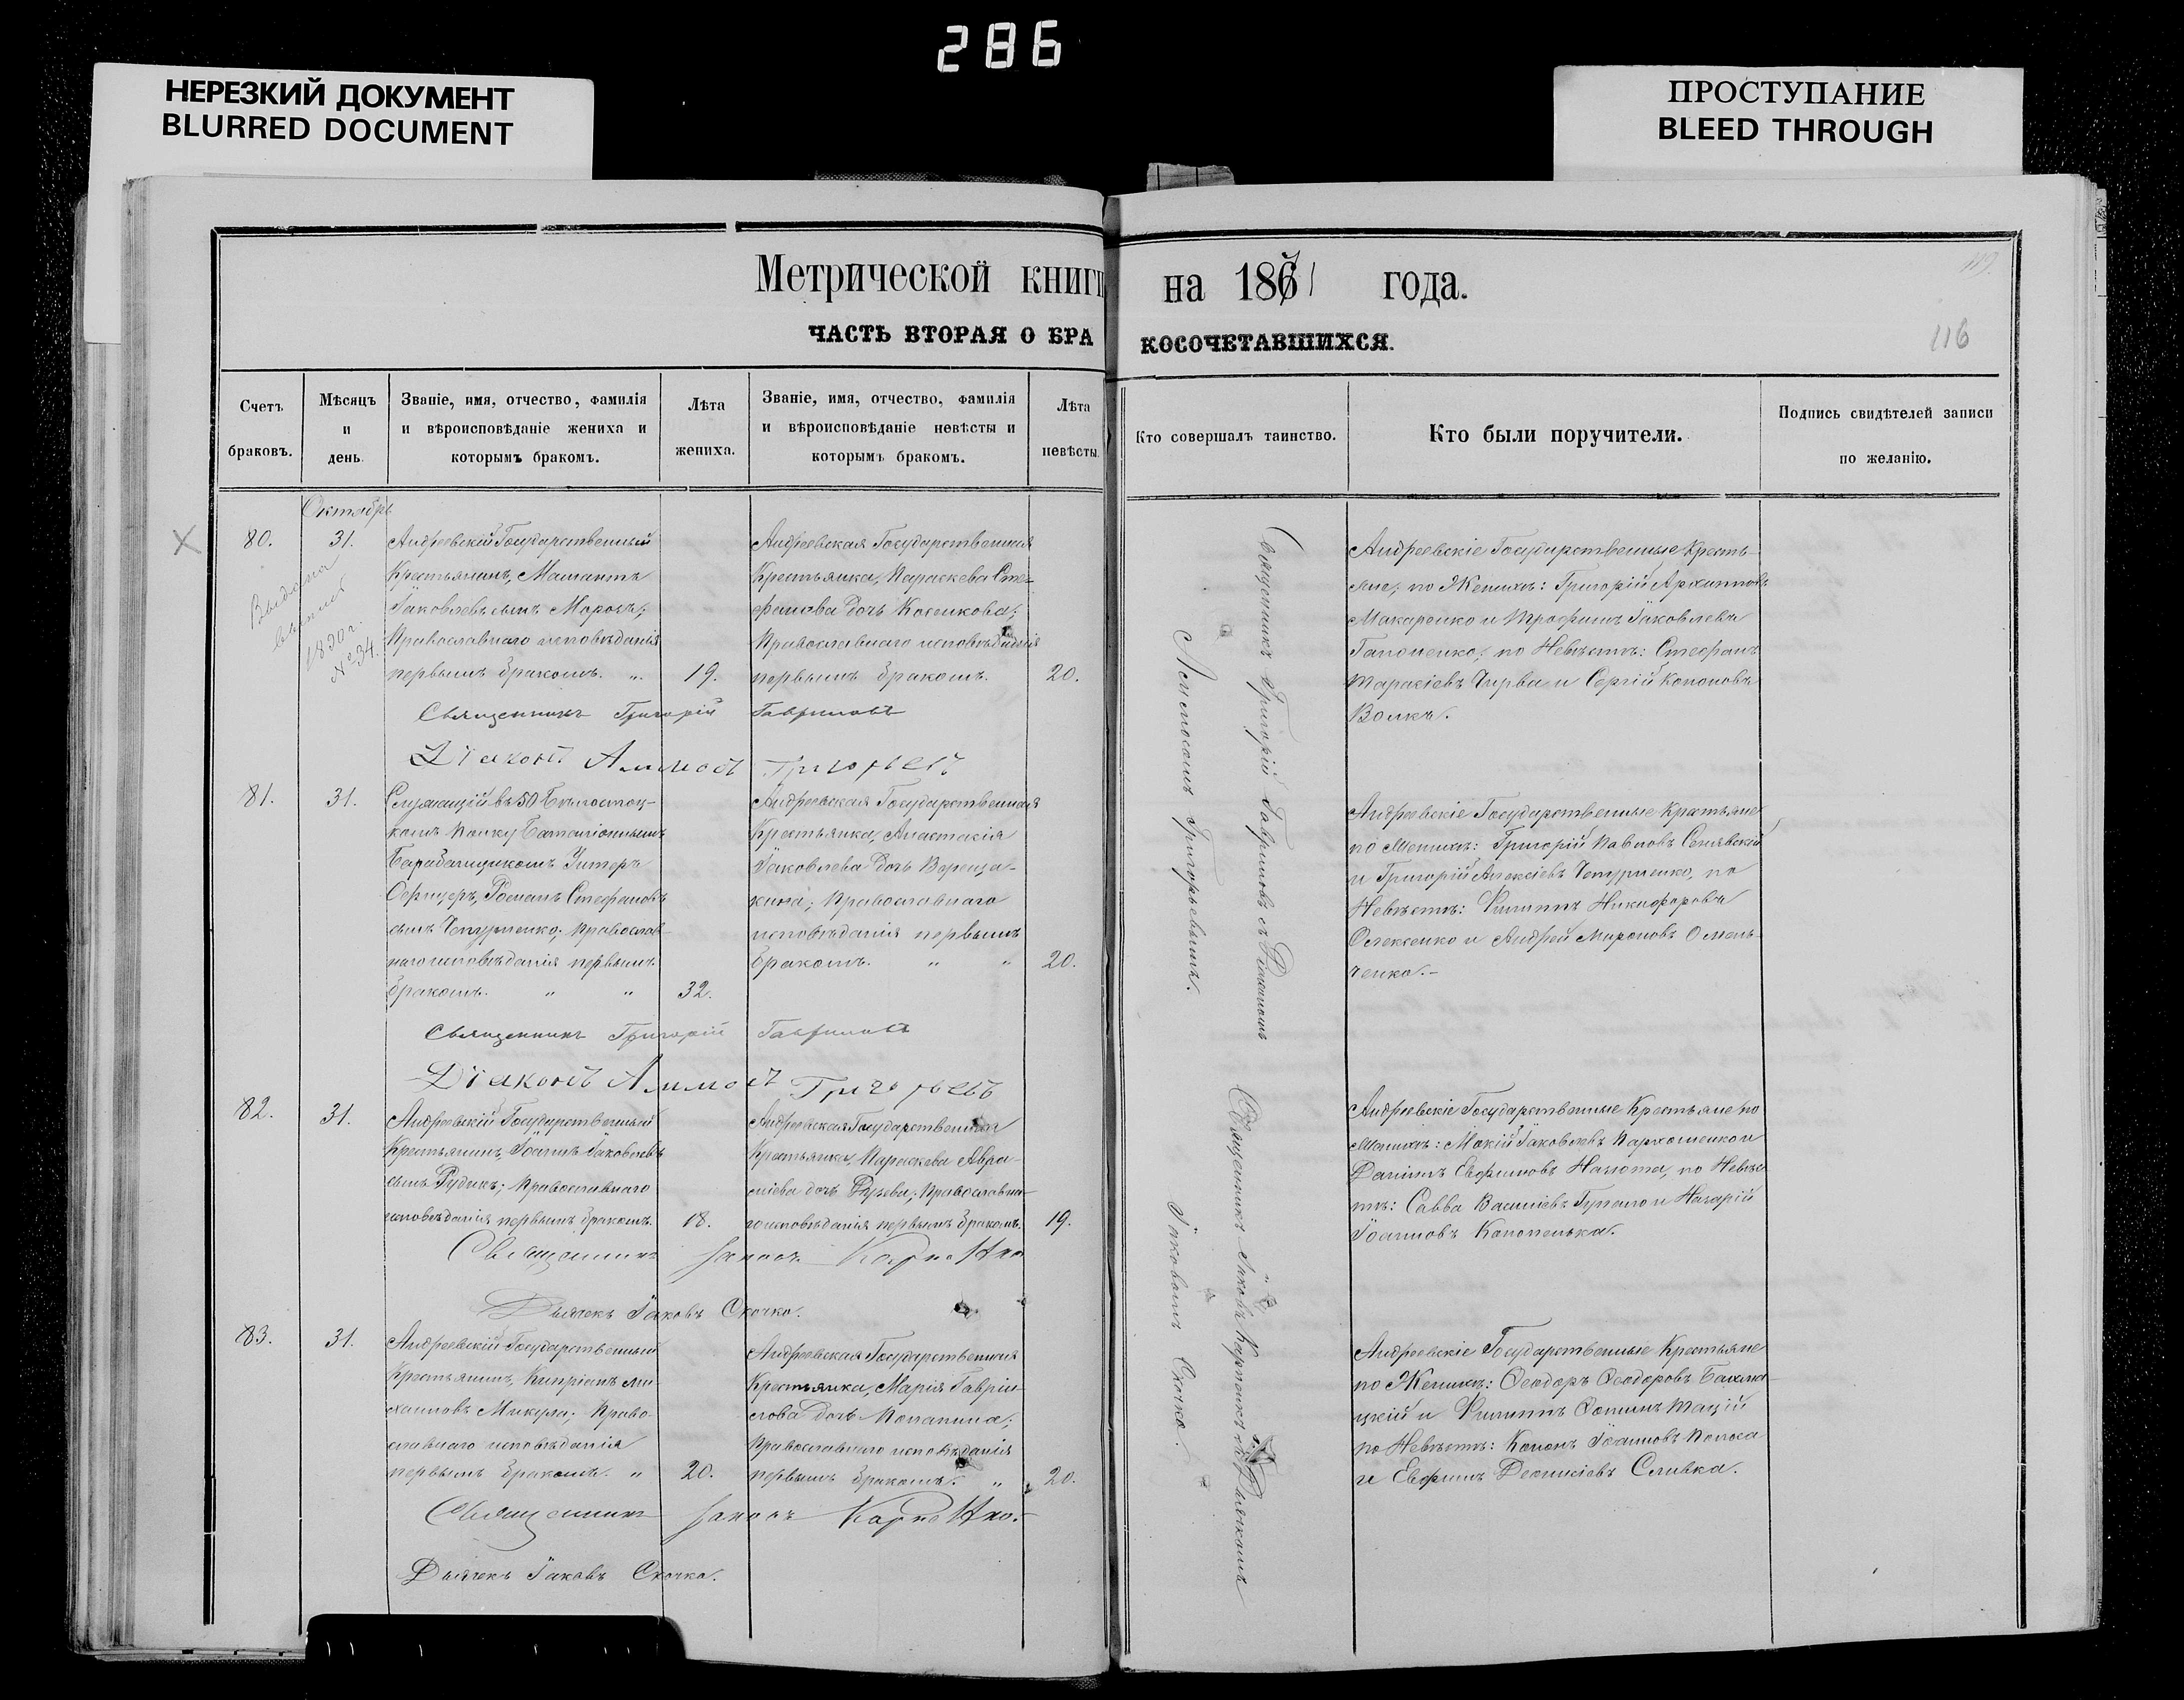 286
НЕРЕЗКИЙ ДОКУМЕНТ
BLURRED DOCUMENT
ПРОСТУПАНИЕ
BLEED THROUGH
Метрической книги на 1871 года.
ЧАСТЬ ВТОРАЯ О БРАКОСОЧЕТАВШИХСЯ.
116
Счетъ браковъ.
Мѣсяцъ и день.
Званіе, имя, отчество, фамилія и вѣроисповѣданіе жениха и которымъ бракомъ.
Лѣта жениха.
Званіе, имя, отчество, фамилія и вѣроисповѣданіе невѣсты и которымъ бракомъ.
Лѣта невѣсты.
Кто совершалъ таинство.
Кто были поручители.
Подпись свидѣтелей записи по желанію.
Октябрь
80.
31.
Андреевскій Государственный
Крестьянинъ,
Іаковлевъ сынъ Морозъ;
Православнаго исповѣданія
первымъ бракомъ. „
19.
Андреевская Государственная
Крестьянка, Параскева Сте-
фанова дочь Косенкова;
Православнаго исповѣданія
первымъ бракомъ.
20.
Выдана
1890 г.
№ 34.
Священникъ Григорій Гавриловъ
Діаконъ Григорьевъ
Священникъ Григорій Гавриловъ съ Діакономъ
Григорьевымъ.
Андреевскіе Государственные Кресть-
яне, по Женихѣ: Григорій Архиповъ
Макаренко и Трофимъ Іаковлевъ
Гапоненко; по Невѣстѣ: Стефанъ
Тарасіевъ Чирва и Сергій Кононовъ
Волкъ.
81.
31.
Служащій въ 50 Бѣлостоц-
комъ Полку Баталіоннымъ
Барабанщикомъ Унтеръ
Офицеръ, Романъ Стефановъ
сынъ Чепурненко; Православ-
наго исповѣданія первымъ
бракомъ. „ „
32.
Андреевская Государственная
Крестьянка, Анастасія
Іаковлева дочь Вереща-
кина; Православнаго
исповѣданія первымъ
бракомъ. „ „
20.
Священникъ Григорій Гавриловъ
Діаконъ Григорьевъ
Андреевскіе Государственные Крестьяне
по Женихѣ: Григорій Павловъ Сенявскій
и Григорій Алексіевъ Чепурненко, по
Невѣстѣ: Филиппъ Никифоровъ
Олексенко и Андрей Мироновъ Омель-
ченко.-
82.
31.
Андреевскій Государственный
Крестьянинъ, Іоаннъ Іаковлевъ
сынъ Рудикъ; Православнаго
исповѣданія первымъ бракомъ.
18.
Андреевская Государственная
Крестьянка, Параскева Авра-
міева дочь Православна-
го исповѣданія первымъ бракомъ.
19.
Священникъ Іаковъ
Дьячекъ Іаковъ Скочко.
Священникъ Іаковъ съ Дьячкомъ
Іаковымъ Скочко.
Андреевскіе Государственные Крестьяне по
Женихѣ: Мокій Іаковлевъ Пархоменко и
Даніилъ Евфимовъ по Невѣс-
тѣ: Савва Василіевъ и Назарій
Іоанновъ Кононенька.
83.
31.
Андреевскій Государственный
Крестьянинъ, Кипріанъ Ми-
хаиловъ Микула; Право-
славнаго исповѣданія
первымъ бракомъ. „
20.
Андреевская Государственная
Крестьянка, Марія Гаврии-
лова дочь
Православнаго исповѣданія
первымъ бракомъ. „
20.
Священникъ Іаковъ
Дьячекъ Іаковъ Скочко.
Андреевскіе Государственные Крестьяне
по Женихѣ: Ѳеодоръ Ѳеодоровъ
и Филиппъ
по Невѣстѣ: Кононъ Іоанновъ
и Евфимъ Сливка.